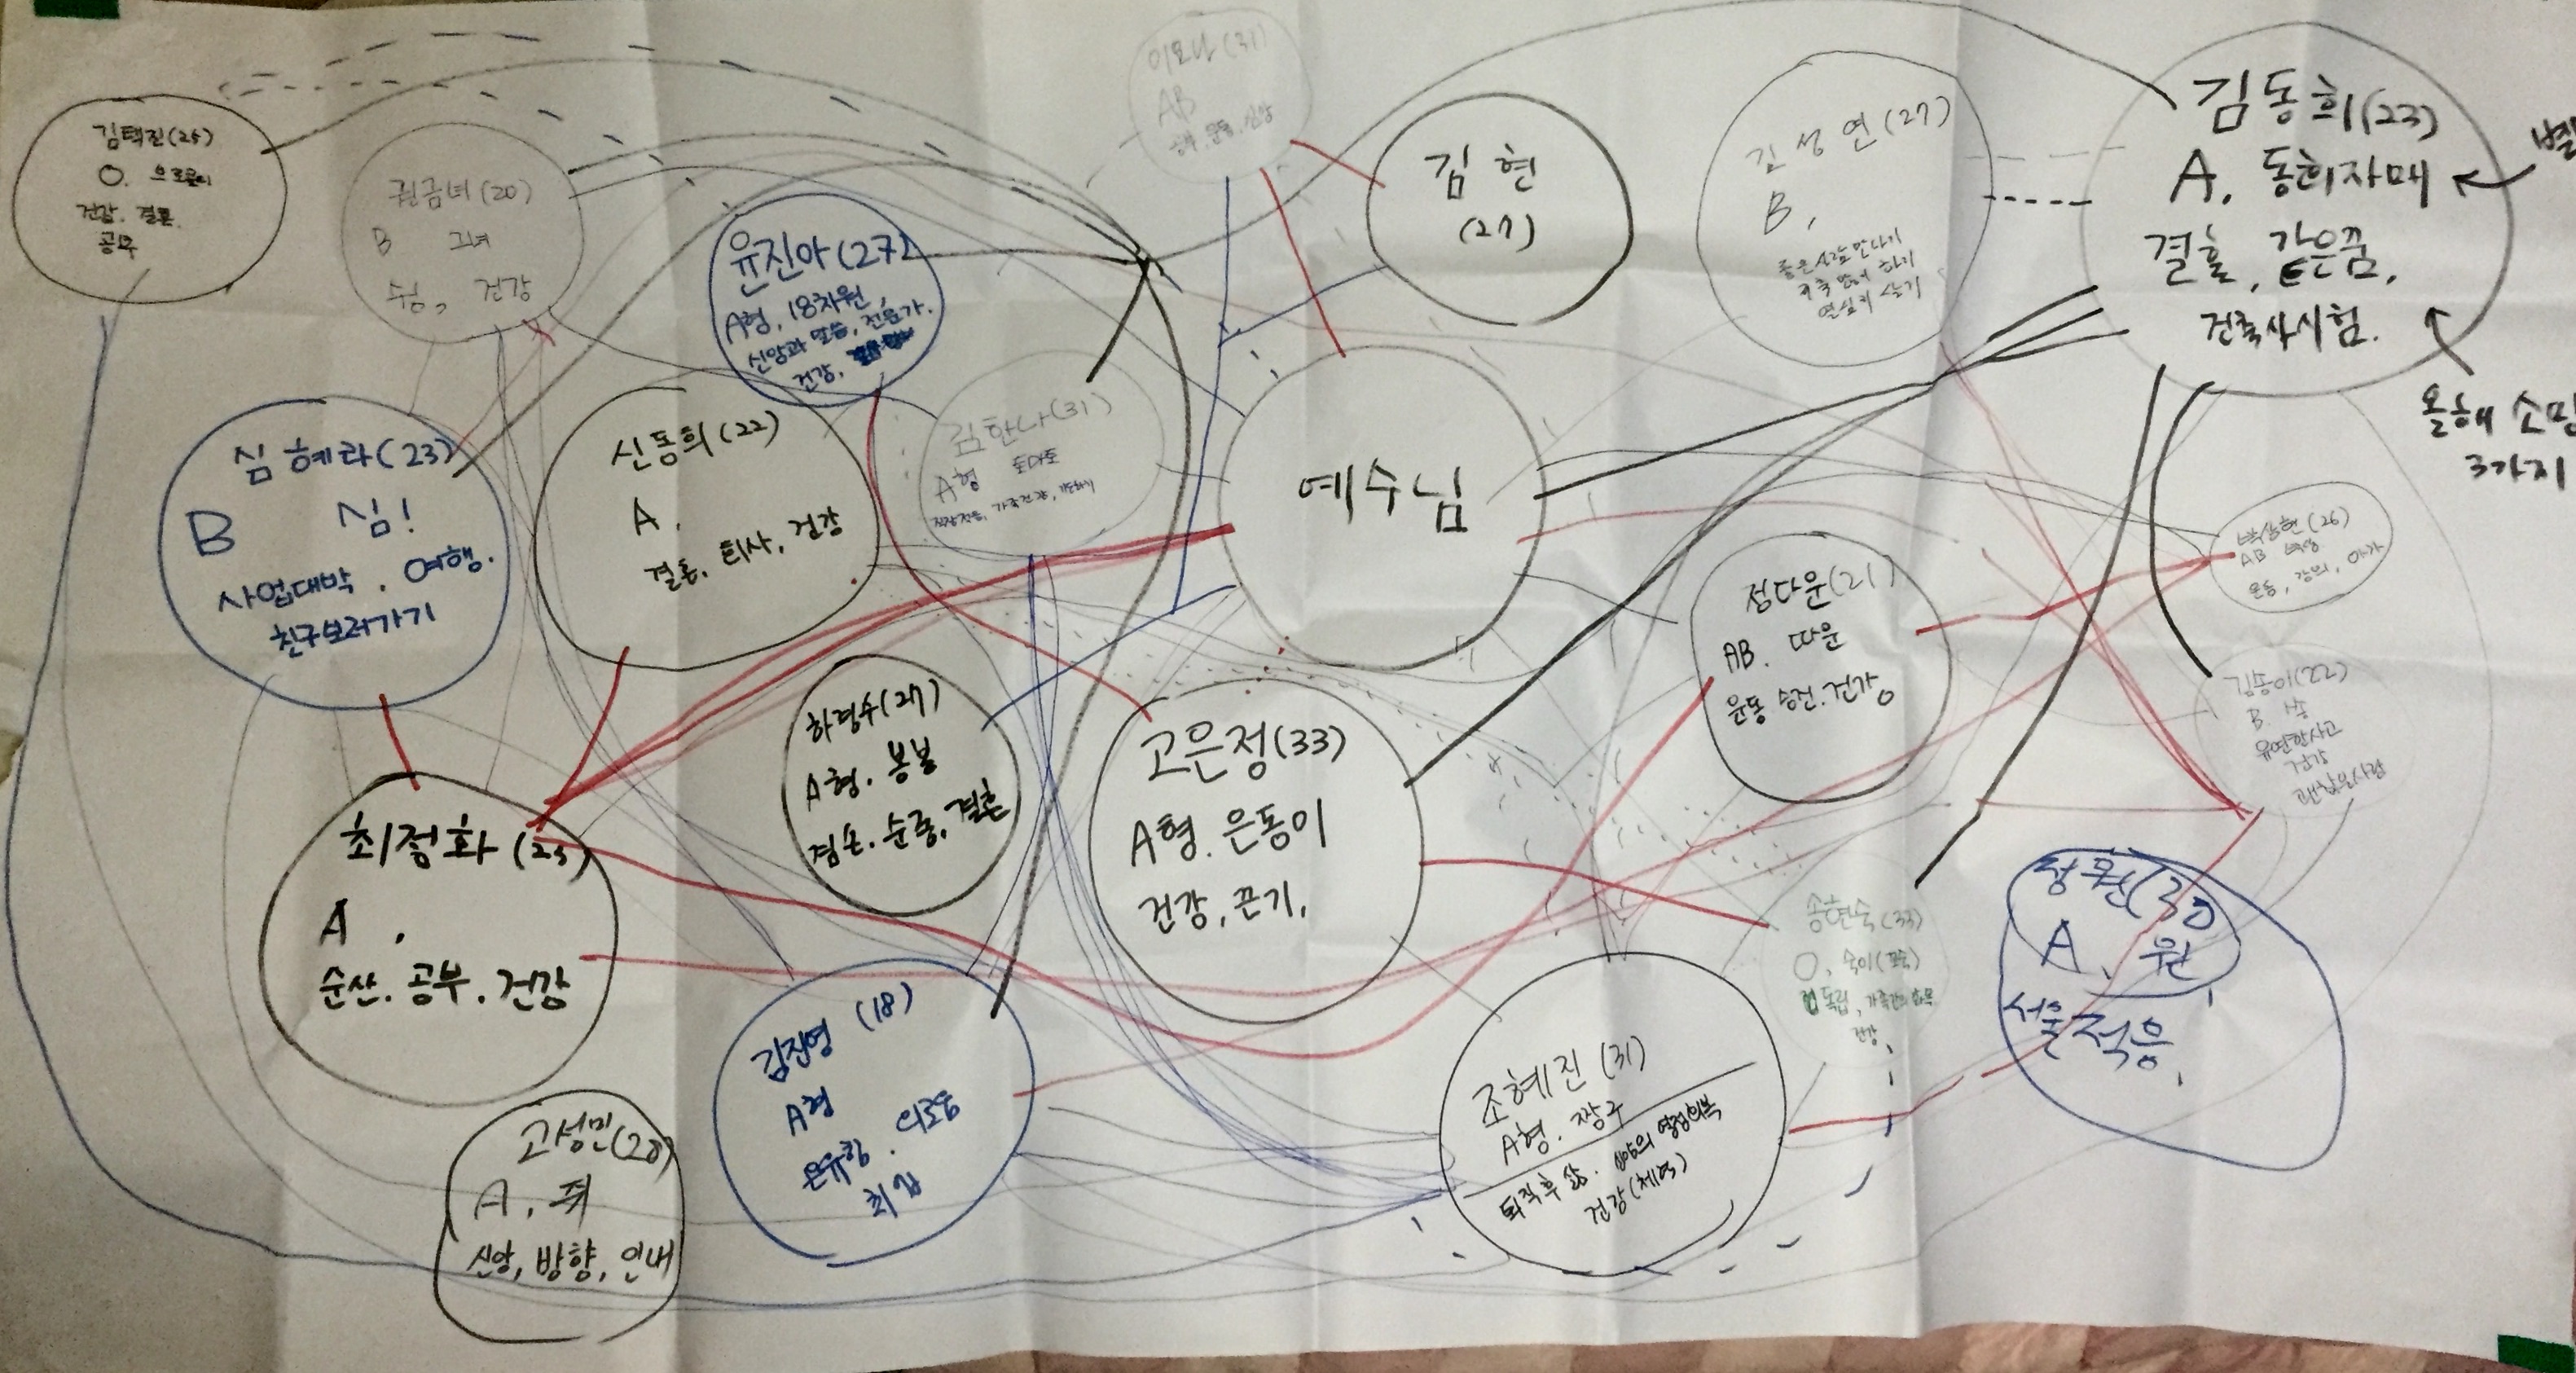 김택진(25)
O.
건강. 결혼.
공부
권금녀(20)
B 그녀
쉼, 건강
유진아(27)
A형, 18차원,
신앙과 말씀, 전문가.
건강,
이요나(31)
AB
공부, 운동, 신앙
김현
(27)
김성연(27)
B,
좋은사람만나기
열심히 살기
김동희(23)
A, 동희자매
결혼, 같은꿈,
건축사시험.
올해 소망
3가지
심혜라(23)
B 심!
사업대박. 여행.
친구보러가기
신동희(22)
A.
결혼, 퇴사, 건강
김한나(31)
A형 토마토
예수님
박상현(26)
AB 박상
운동, 강의, 아가
정다운(21)
AB. 따운
운동 승진. 건강
김송이(22)
B. 송
유연한사고
건강
괜찮은사람
하경수(27)
A형. 봉봉
겸손. 순종, 결혼
고은정(33)
A형. 은동이
건강, 끈기,
최정화(25)
A,
순산. 공부. 건강
송현숙(33)
O, 숙이(쪼숙)
독립,
건강
정원(30)
A, 원
서울적응,
김진영 (18)
A형
온유함.
조혜진(31)
A형. 짱구
퇴직후 삶.
건강(체력)
고성민(20)
A, 쭈
신앙, 방향, 인내